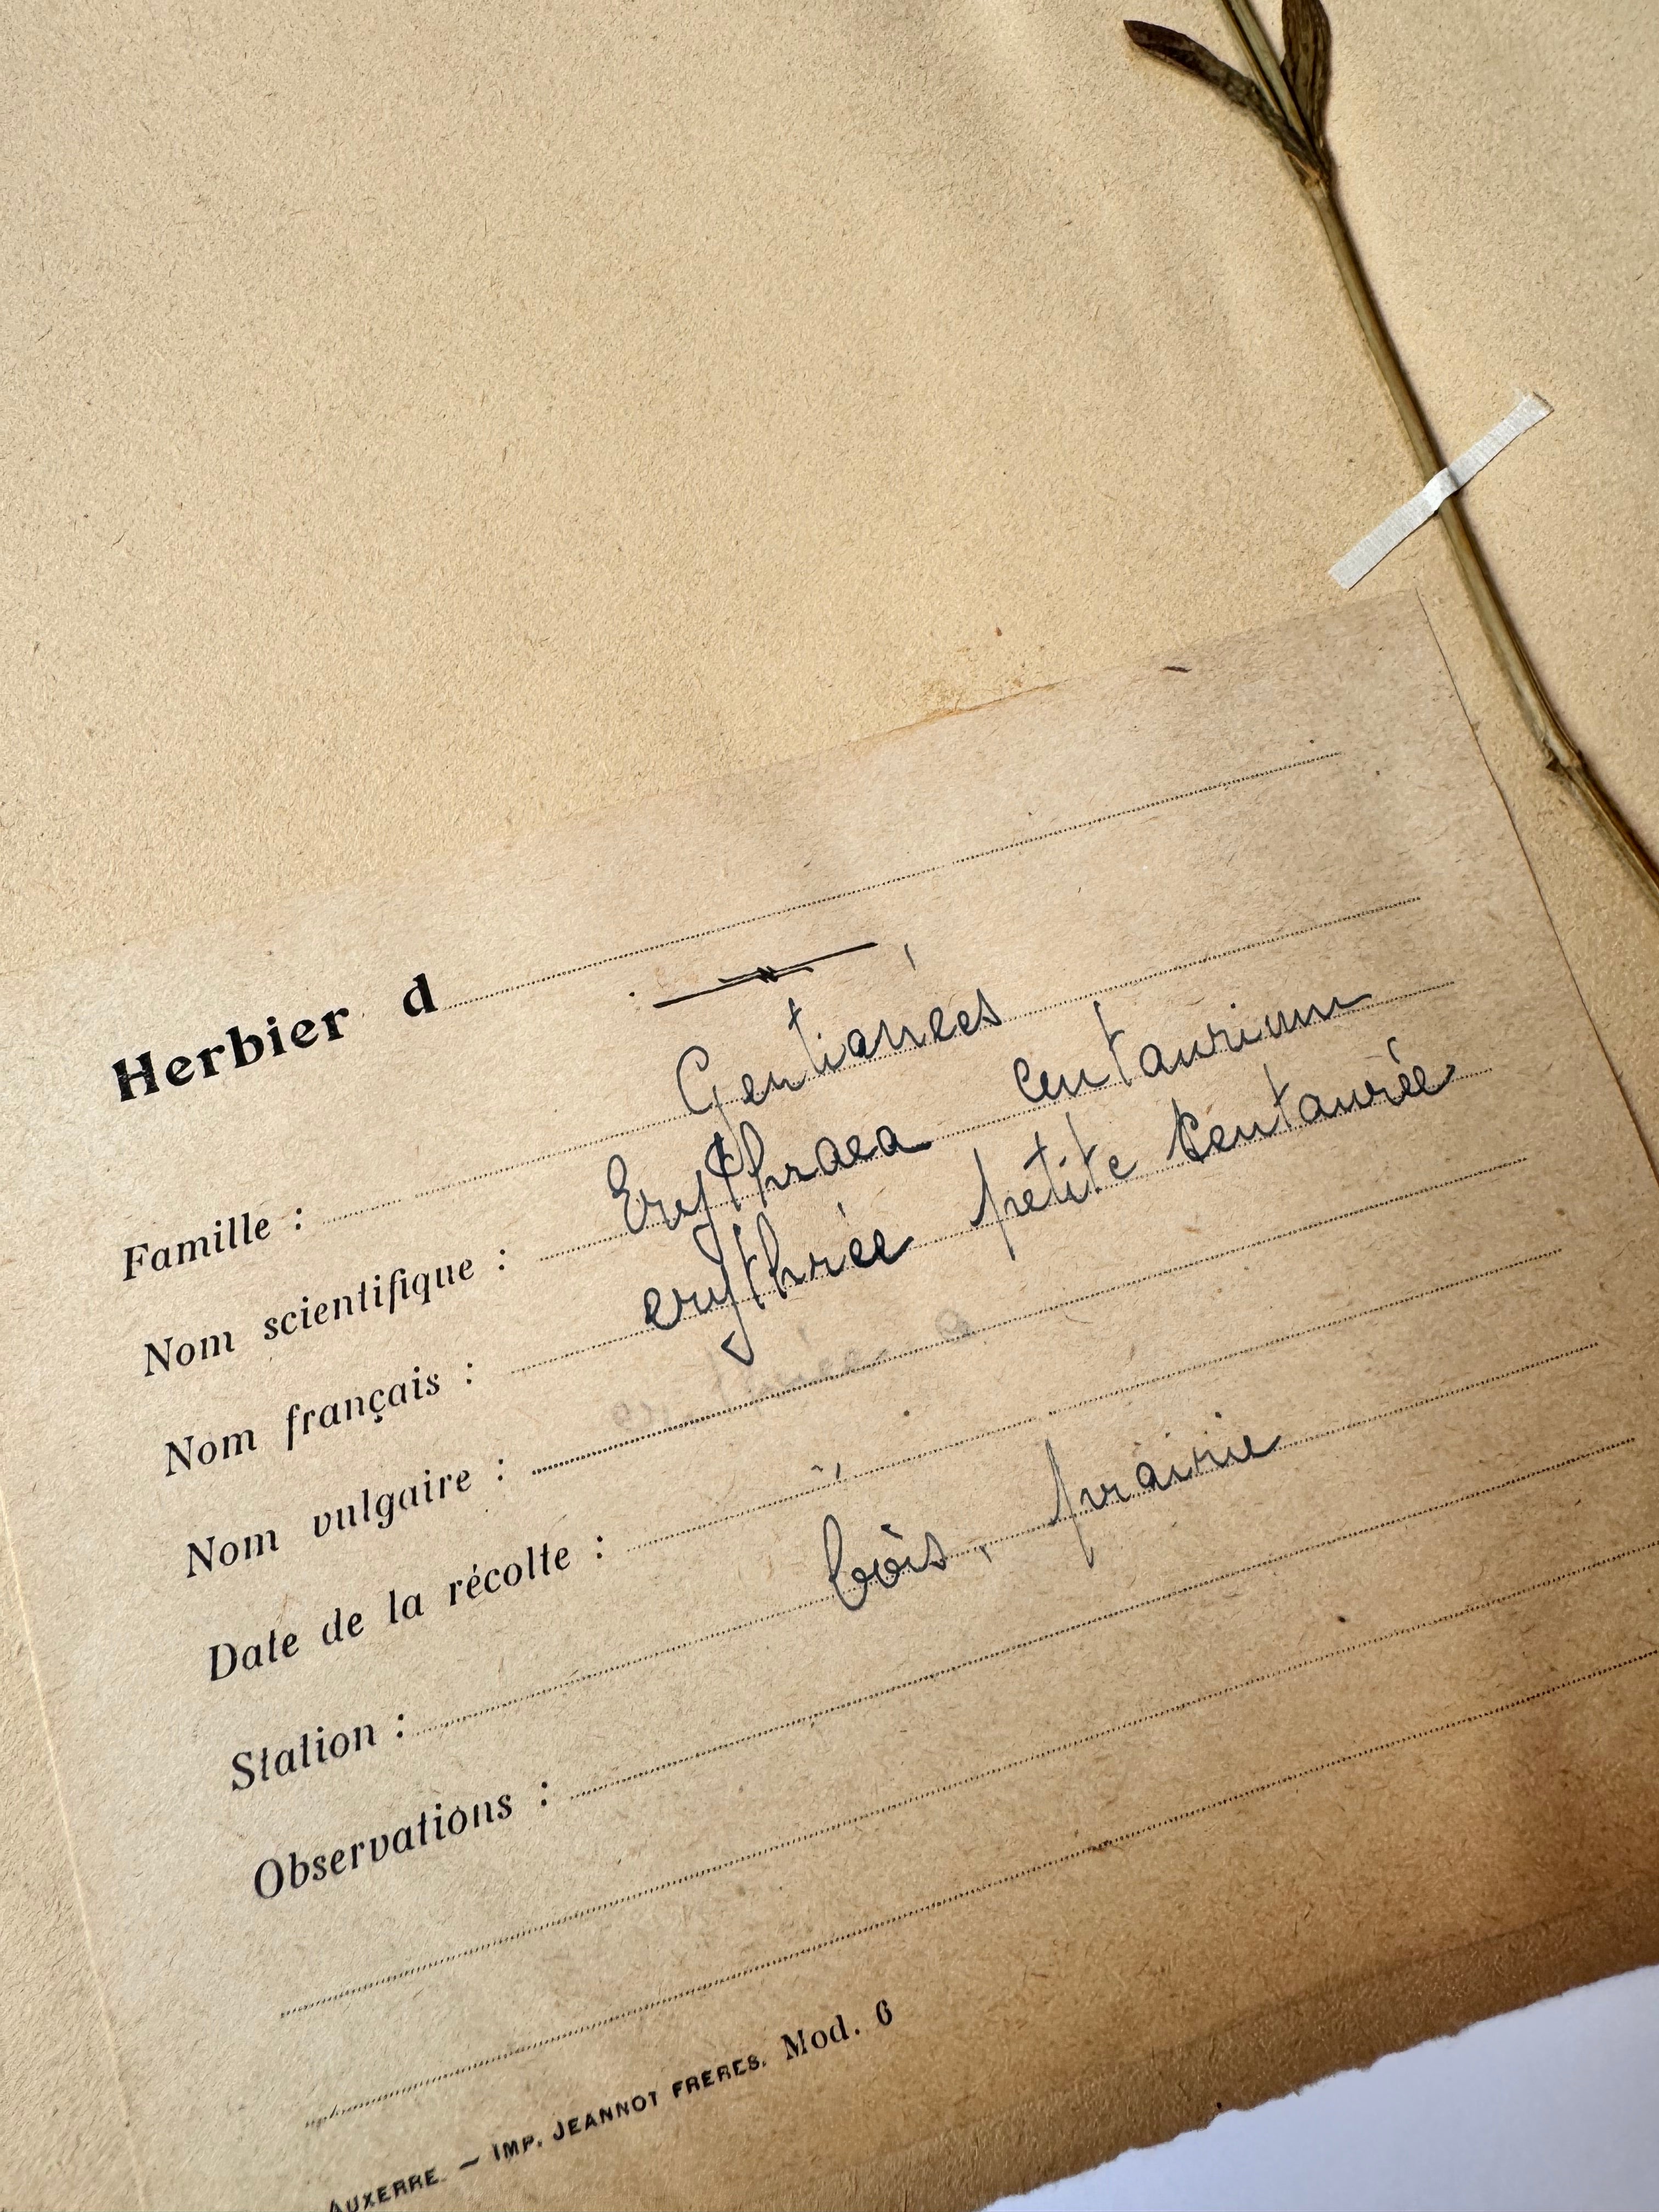 Herbier d
Famille : Gentianées
Nom scientifique : Erythraea Centaurium
Nom français : erythrée petite Centaurée
Nom vulgaire :
Date de la récolte :
Station : bois, prairie
Observations :
AUXERRE. — IMP. JEANNOT FRERES. Mod. 6